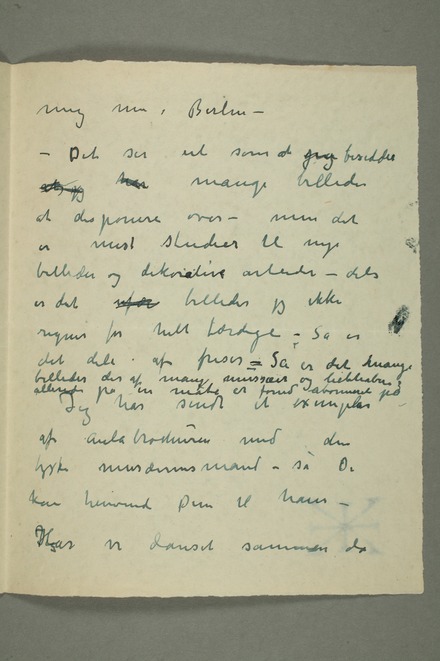 mig nu i Berlin –
– Det ser ut som at jeg besidder
at jeg har mange billeder
at disponere over – men det
er mest studier til nye
billeder og dekorative arbeider – dels
er det billeder jeg ikke
regner for helt færdige – Så er
det dele af friser = Så er det mange
billeder der af mang museer og
allerede på en måte er forud abonneret på
Jeg har sendt et exemplar
af aulabrochüren med den
tyske museumsmand – så De
kan henvende Dem til ham –
Har vi danset sammen da